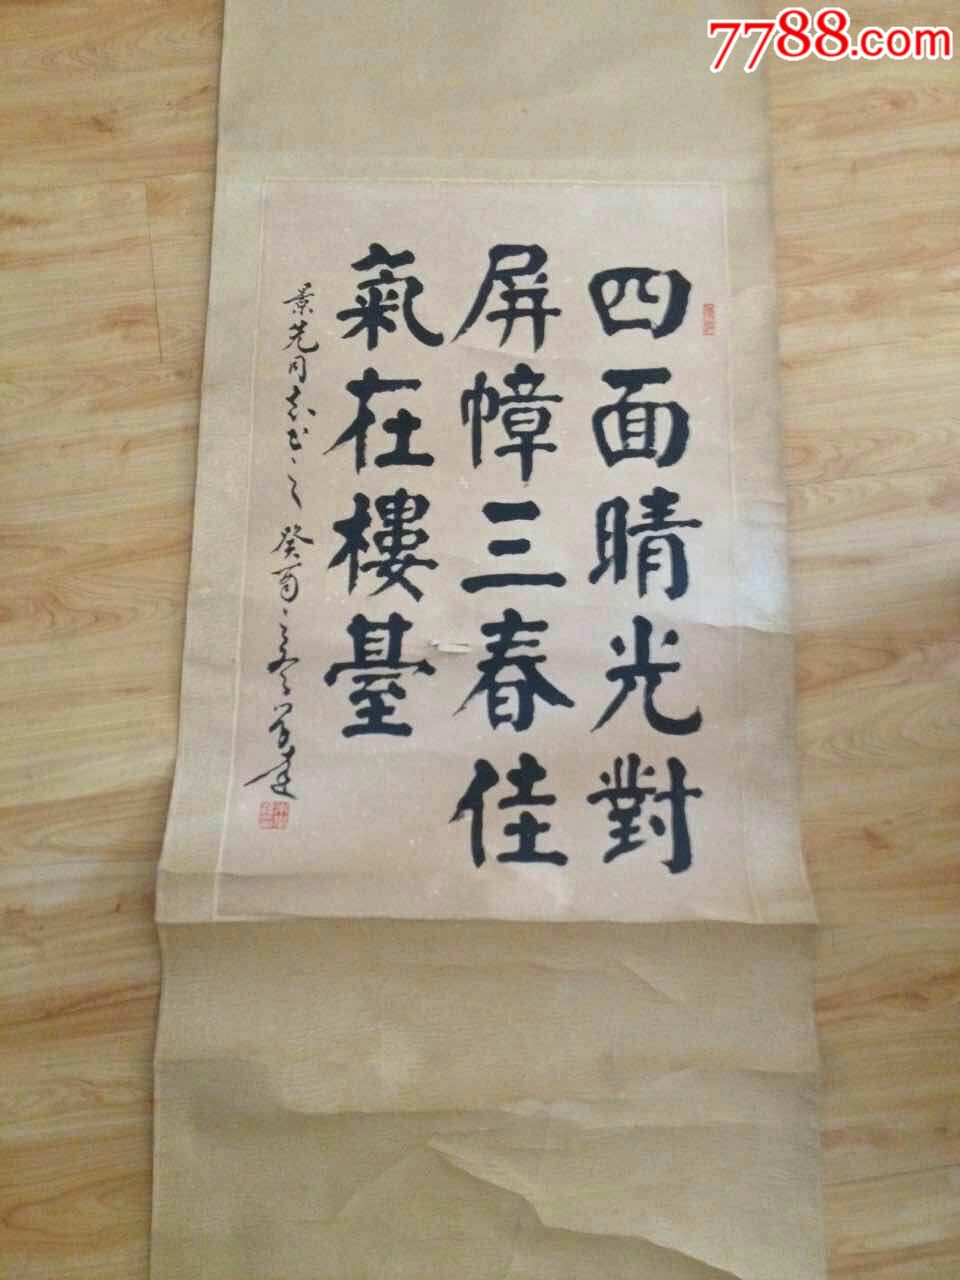 7788.com
四面晴光對
屏幛三春佳
氣在樓臺
景先同志书之
癸酉之冬